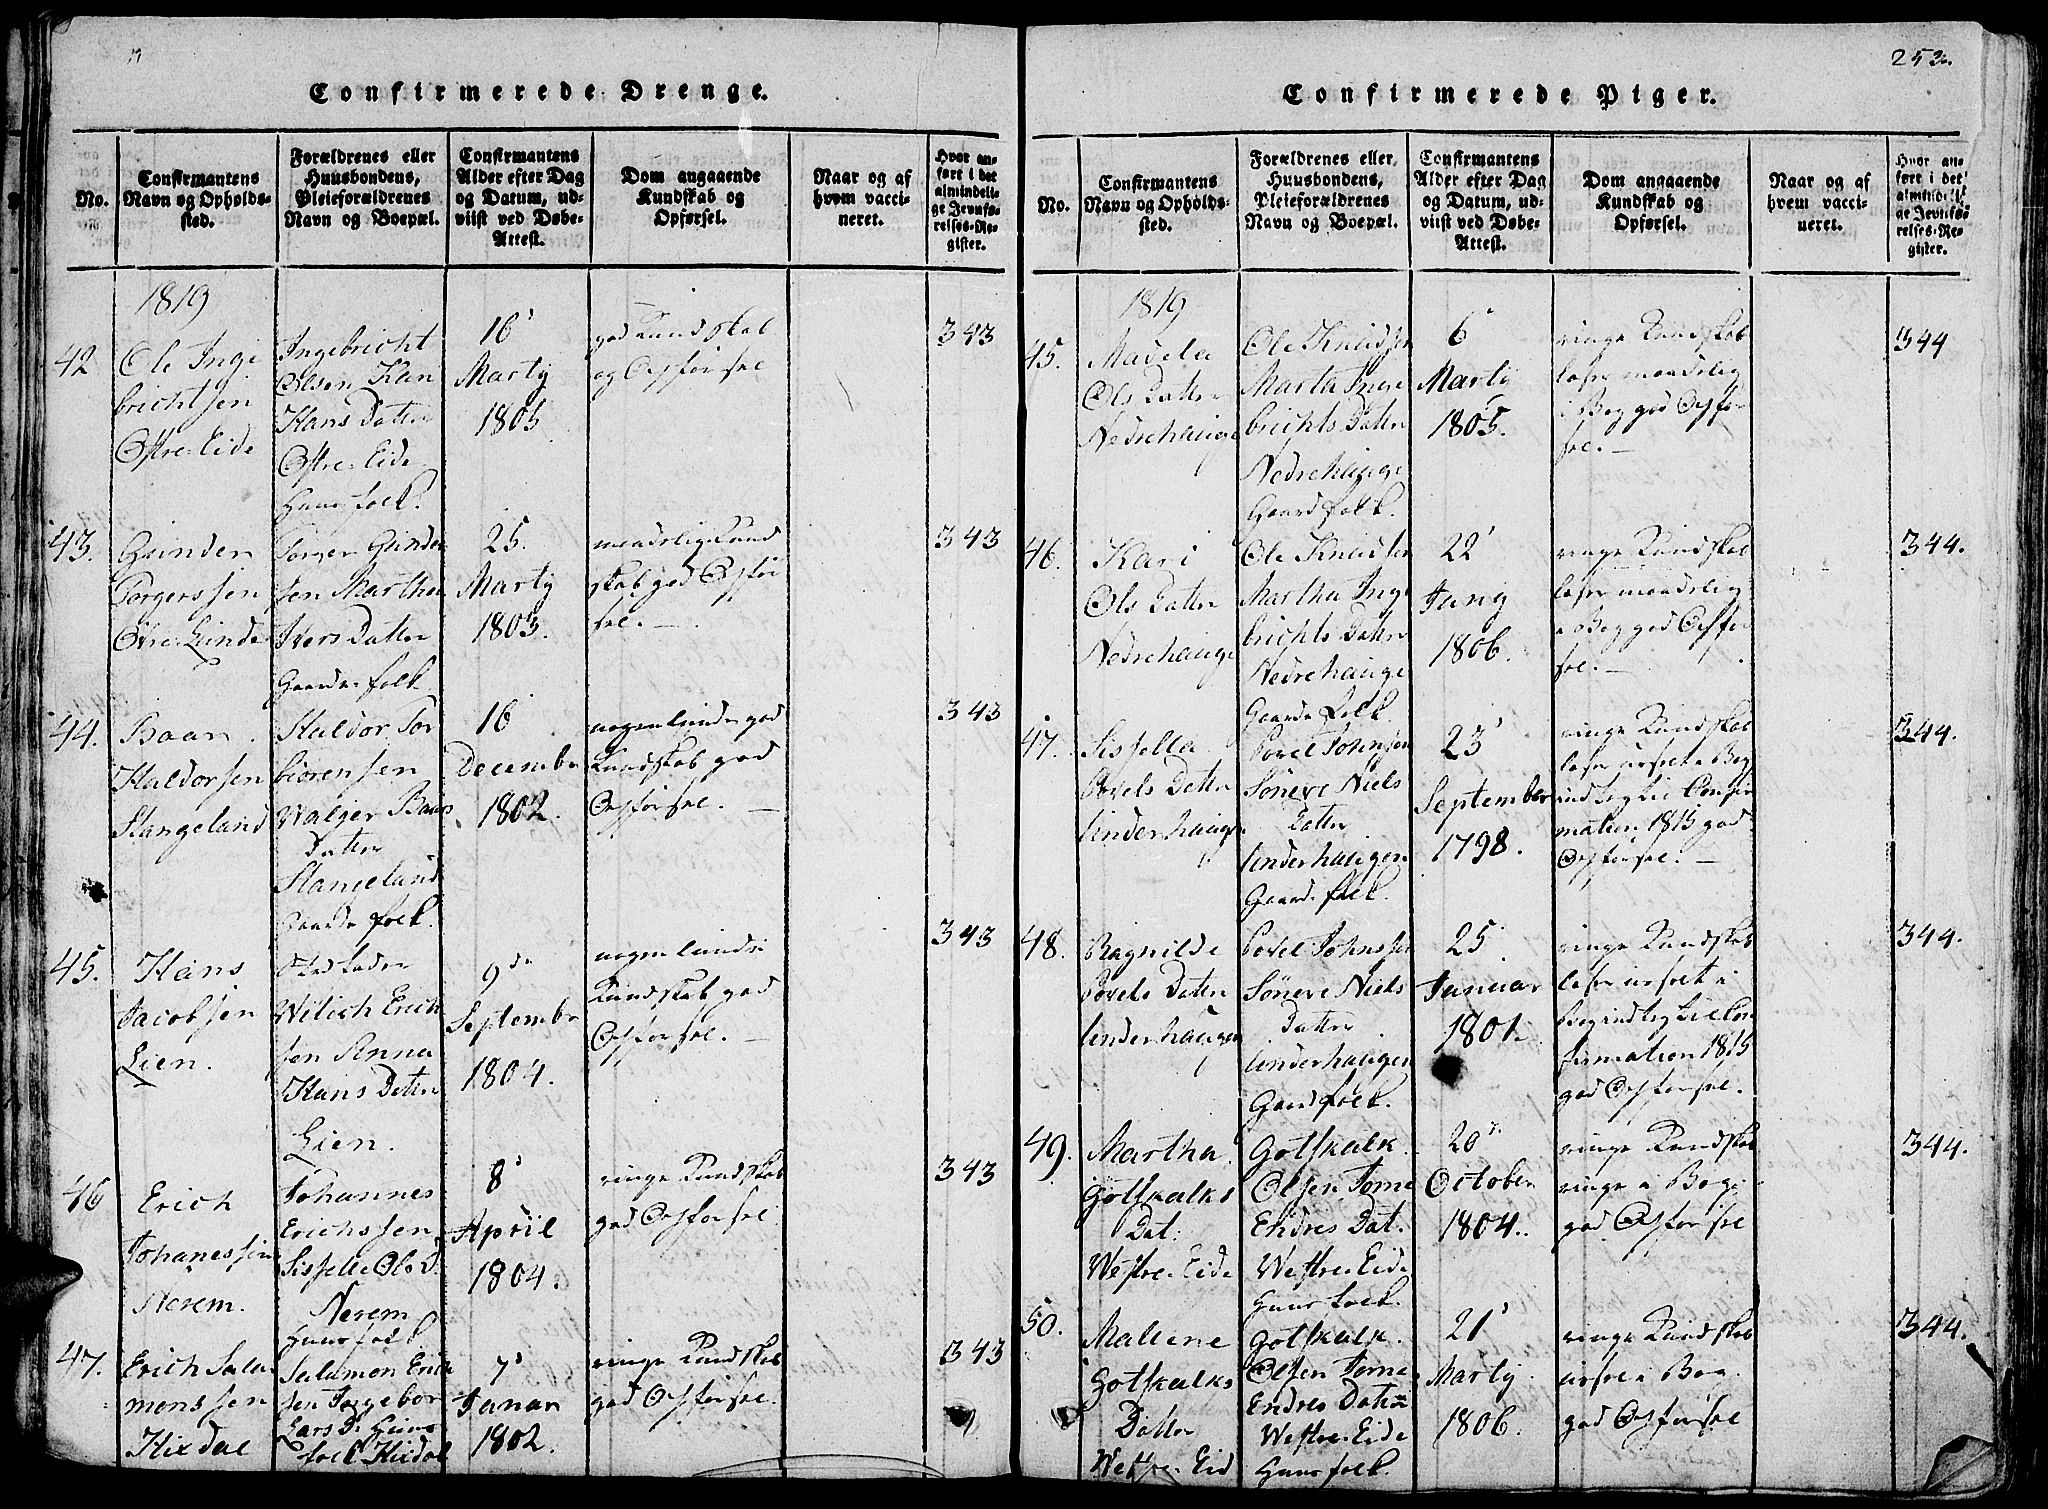 Confirmerede Drenge.
No.
Confirmantens
Navn og Opholds-
sted.
Forældrenes eller
Huusbondens,
Pleieforældrenes
Navn og Boepæl.
Confirmantens
Alder efter Dag
og Datum, ud-
viist ved Døbe-
Attest.
Dom angaaende
Kundskab og
Opførsel.
Naar og af
hvem vacci-
neret.
Hvor an-
ført i det
almindeli-
ge Jevnfø-
relses-Re-
gister.
1819
42
Ole Inge
brichtsen
Østre Eide
Ingebricht
Olsen Kari
Hans Datter
Østre Eide
Huusfolk.
16
Martij
1805
god Kundskab
og Opførsel
343
43.
Gunder
Torgerssen
Lunde
Torger Gunder
sen Martha
Ivers Datter
Gaardefolk
25.
Martij
1803.
maadelig Kund
skab god Opfør
sel.
343
44.
Baar
Haldorsen
Stangeland
Haldor Tor
biørensen
Walger Baars
Datter
Stangeland
Gaardefolk.
16
December
1802.
nogenlunde god
Kundskab god
Opførsel.
343
45.
Hans
Jacobsen
Lien.
Wilich Erich
sen Anna
Hans Datter
Lien.
9de
September
1804.
nogenlunde
Kundskab god
Opførsel.
343
46
Erich
Johanessen
Nerem.
Johannes
Erichssen
Sisselle Ols D.
Nerem
Huusfolk
8
April
1804.
ringe Kundskab
god Opførsel
343
47.
Erich Sala
monssen
Hixdal
Salamon Erich
sen Ingebor
Lars D. Huus
folk Hixdal
7
Januar
1802.
ringe Kundskab
god Opførsel.
343
253.
Confirmerede Piger.
No.
Confirmantens
Navn og Opholds-
sted.
Forældrenes eller
Huusbondens,
Pleieforældrenes
Navn og Boepæl.
Confirmantens
Alder efter Dag
og Datum, ud-
viist ved Døbe-
Attest.
Dom angaaende
Kundskab og
Opførsel.
Naar og af
hvem vacci-
neret.
Hvor an-
ført i det
almindeli-
ge Jevnfø-
relses-Re-
gister.
1819
45.
Madela
Ols Datter
Nedrehauge
Ole Knudsen
Marta Inge
brichts Datter
Nedrehauge
Gaardfolk.
6
Martij
1805.
ringe Kundskab
læser maadelig
i Bog god Opfør
sel.
344
46.
Kari
Ols Datter
Nedrehauge
Ole Knudsen
Martha Inge
brichts Datter
Nedrehauge
Gaardefolk.
22
Junij
1806.
ringe Kundskab
læser maadelig
i Bog god Opfør
sel.
344.
47.
Sissella
Povels Datter
Underhaugen
Povel Johnsen
Søneve Niels
Datter
Underhaugen
Gaardefolk.
23
September
1798.
ringe Kundskab
læser usselt i Bog
Confir
mation 1815 god
Opførsel.
344.
48.
Ragnilde
Povels Datter
Underhaugen
Povel Johnssen
Søneve Niels
Datter
Underhaugen
Gaardfolk.
25
Januar
1801.
ringe Kundskab
læser usselt i
Bog Con
firmation 1815
god Opførsel.
344.
49.
Martha
Gotskalks
Dat.
Westre Eide
Gotskalk
Olsen Torne
Endres Dat.
Westre Eide
Huusfolk.
20
October
1804.
ringe Kundskab
ringe i Bog
god Opførsel
344.
50.
Mallene
Gotskalks
Datter
Westre Eid
Gotskalk
Olsen Torne
Endres Datter
Westre Eide
Huusfolk.
21
Martij
1806.
ringe Kundskab
ussel i Bog.
god Opførsel
344.